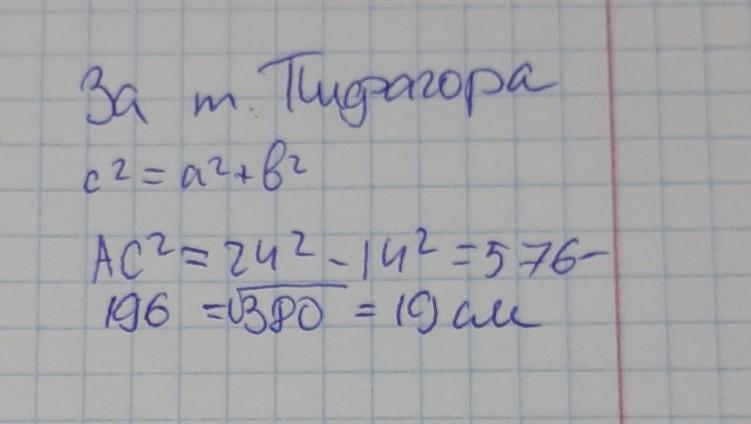 За т. Пифагора
c² = a² + b²
AC² = 24² - 14² = 576 -
196 = √380 = 19 см